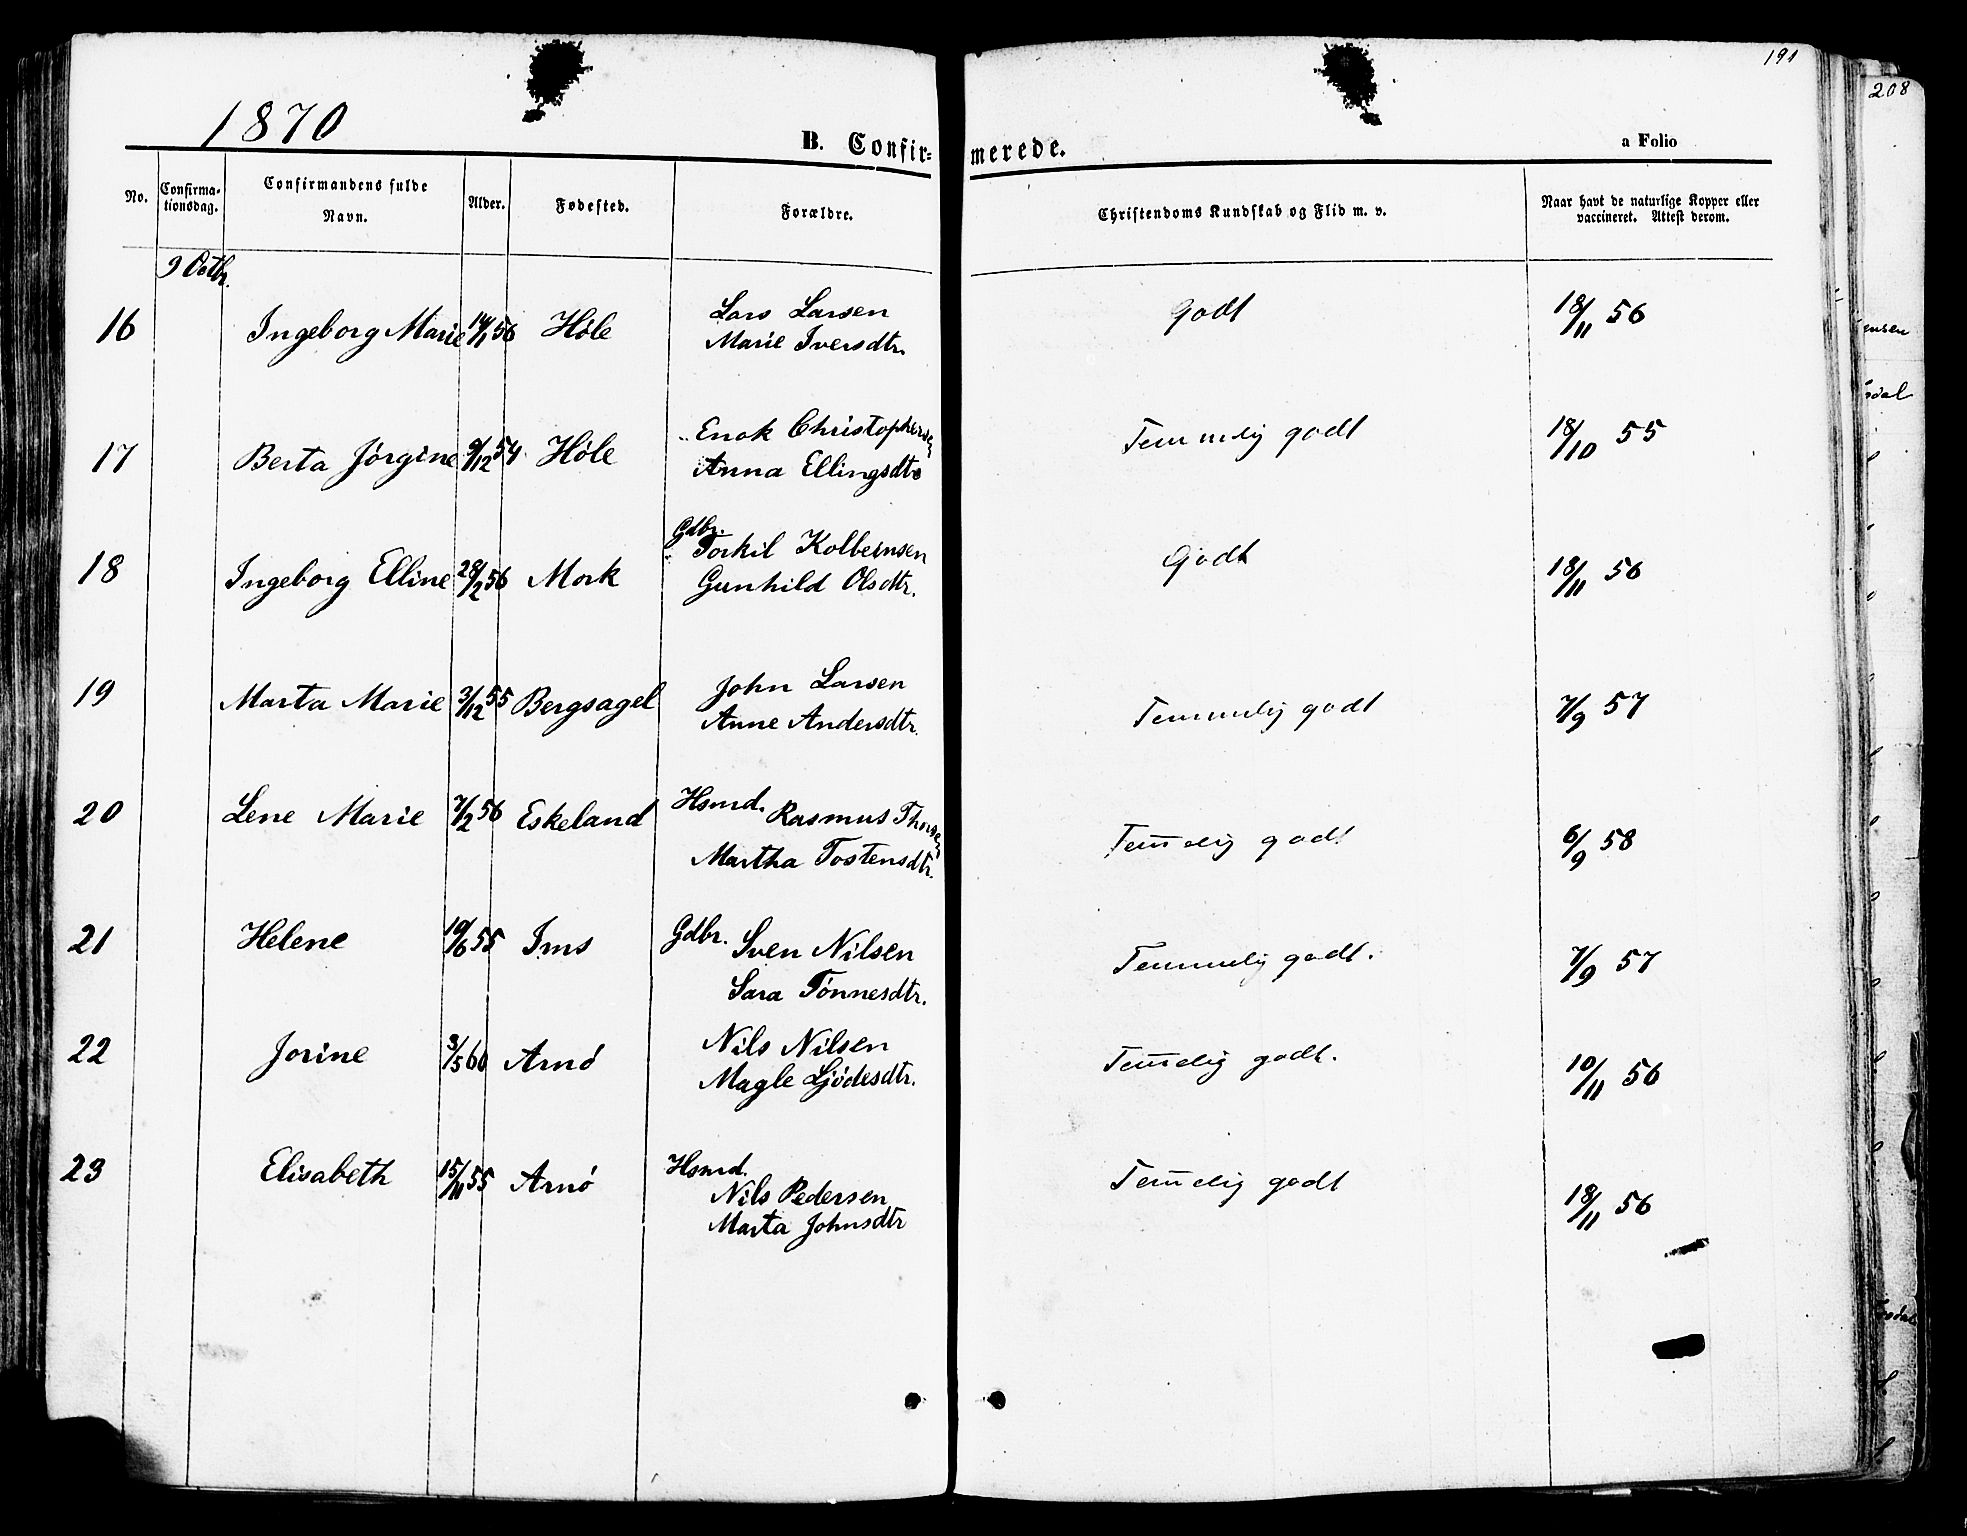 191
208
1870
B. Confirmerede.
a Folio
No.
Confirma-
tionsdag.
Confirmandens fulde
Navn.
Alder.
Fødested.
Forældre.
Christendoms Kundskab og Flid m. v.
Naar havt de naturlige Kopper eller
vaccineret. Attest derom.
9 Octbr.
16 Ingeborg Marie 14/1 56 Høle Lars Larsen Godt 18/11 56
Marie Iversdtr.
17 Berta Jørgine 9/12 54 Høle " Enok Christophersen Temmelig godt 18/10 55
Anna Ellingsdtr
Gdbr.
18 Ingeborg Elline 28/2 56 Mork " Torkil Kolbernsen Godt 18/11 56
Gunhild Olsdtr.
19 Marta Marie 3/12 55 Bergsagel John Larsen Temmelig godt 7/9 57
Anne Andersdtr.
20 Lene Marie 7/2 56 Eskeland Hsmd. Rasmus Thorsen Tem̅elig godt 6/9 58
Martha Tostensdtr.
21 Helene 10/6 55 Ims Gdbr. Sven Nilsen Temmelig godt. 7/9 57
Sara Tønnesdtr.
22 Jorine 3/5 Arnø Nils Nilsen Tem̅elig godt. 10/11 56
Magle Ljødesdtr.
23 Elisabeth 15/11 55 Arnø Hsmd. Tem̅elig godt 18/11 56
Nils Pedersen
Marta Johnsdtr